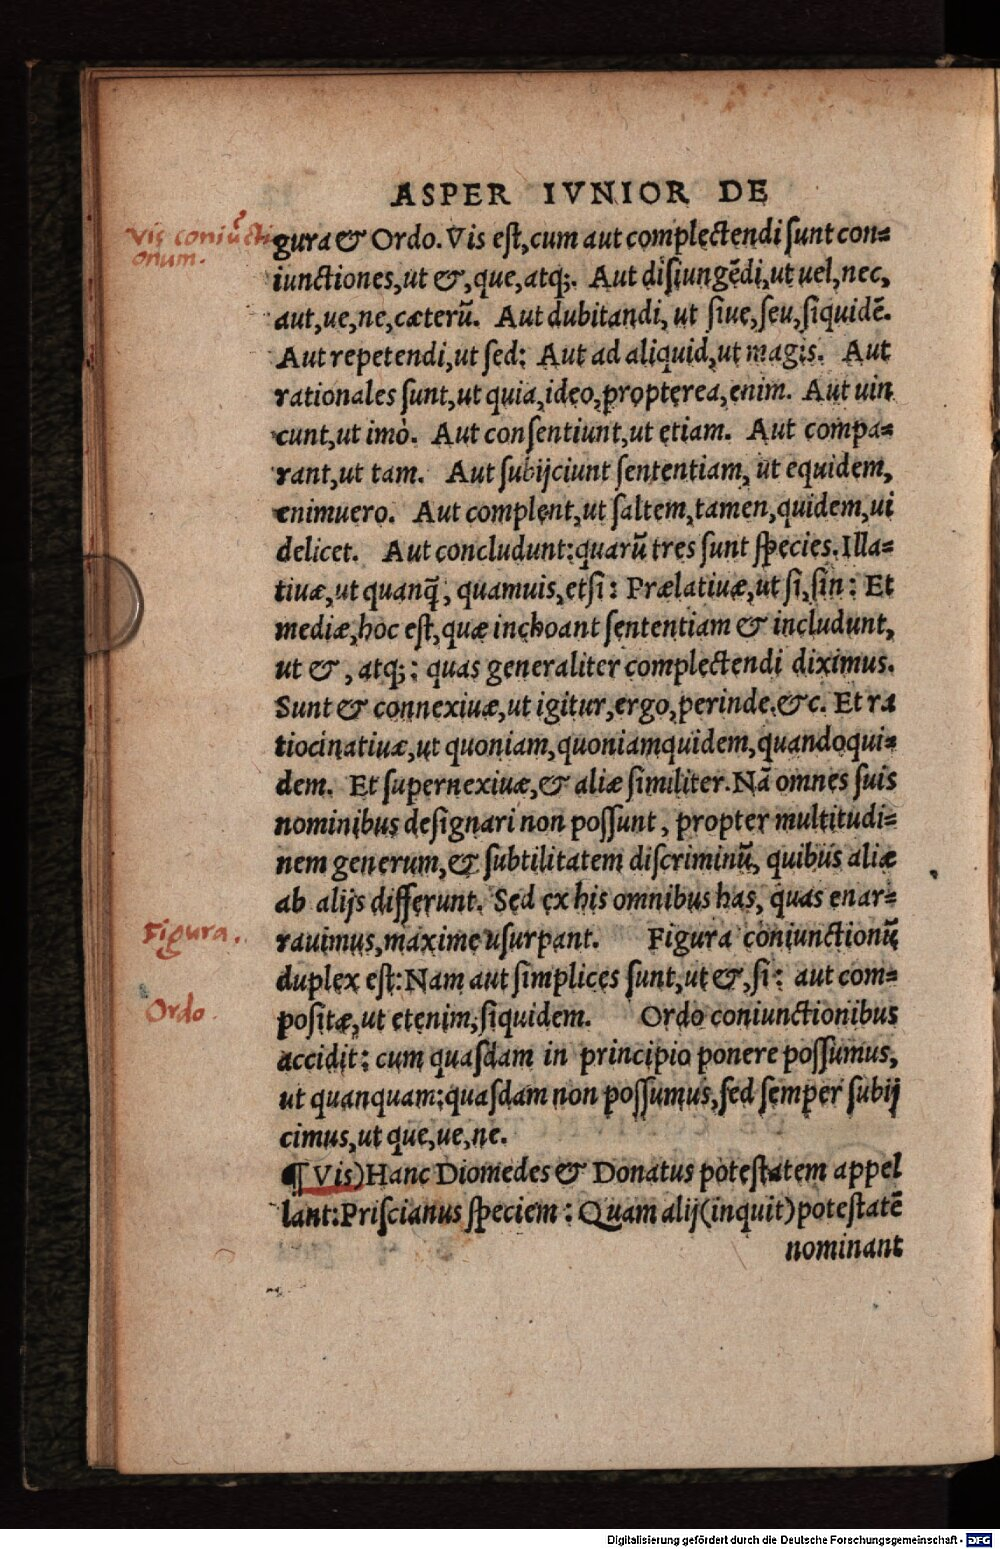 ASPER IVNIOR DE
Vis coniūcti
onum.
gura & Ordo. Vis est, cum aut complectendi sunt con=
iunctiones, ut &, que, atq;. Aut disiungēdi, ut uel, nec,
aut, ue, ne, cæterū. Aut dubitandi, ut siue, seu, siquidē.
Aut repetendi, ut sed: Aut ad aliquid, ut magis. Aut
rationales sunt, ut quia, ideo, propterea, enim. Aut uin
cunt, ut imò. Aut consentiunt, ut etiam. Aut compa=
rant, ut tam. Aut subijciunt sententiam, ut equidem,
enimuero. Aut complent, ut saltem, tamen, quidem, ui
delicet. Aut concludunt: quarū tres sunt species. Illa=
tiuæ, ut quanq̃, quamuis, etsi: Prælatiuæ, ut si, sin: Et
mediæ, hoc est, quæ inchoant sententiam & includunt,
ut &, atq;: quas generaliter complectendi diximus.
Sunt & connexiuæ, ut igitur, ergo, perinde, &c. Et ra
tiocinatiuæ, ut quoniam, quoniamquidem, quandoqui=
dem. Et supernexiuæ, & aliæ similiter. Nā omnes suis
nominibus designari non possunt, propter multitudi=
nem generum, & subtilitatem discriminū, quibus aliæ
ab alijs differunt. Sed ex his omnibus has, quas enar=
rauimus, maxime usurpant. Figura coniunctionū
Figura.
duplex est: Nam aut simplices sunt, ut &, si: aut com=
positæ, ut etenim, siquidem. Ordo coniunctionibus
Ordo.
accidit: cum quasdam in principio ponere possumus,
ut quanquam: quasdam non possumus, sed semper subij
cimus, ut que, ue, ne.
¶ Vis) Hanc Diomedes & Donatus potestatem appel
lant: Priscianus speciem: Quam alij (inquit) potestatē
nominant
Digitalisierung gefördert durch die Deutsche Forschungsgemeinschaft - DFG